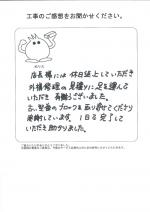 工事のご感想をお聞かせください。
店長様には休日返上していただき
外構修理の見積りに足を運んで
いただき 有難うございました。
古い型番のブロックを取り寄せてくださり
感謝しています。1日で完了して
いただき助かりました。